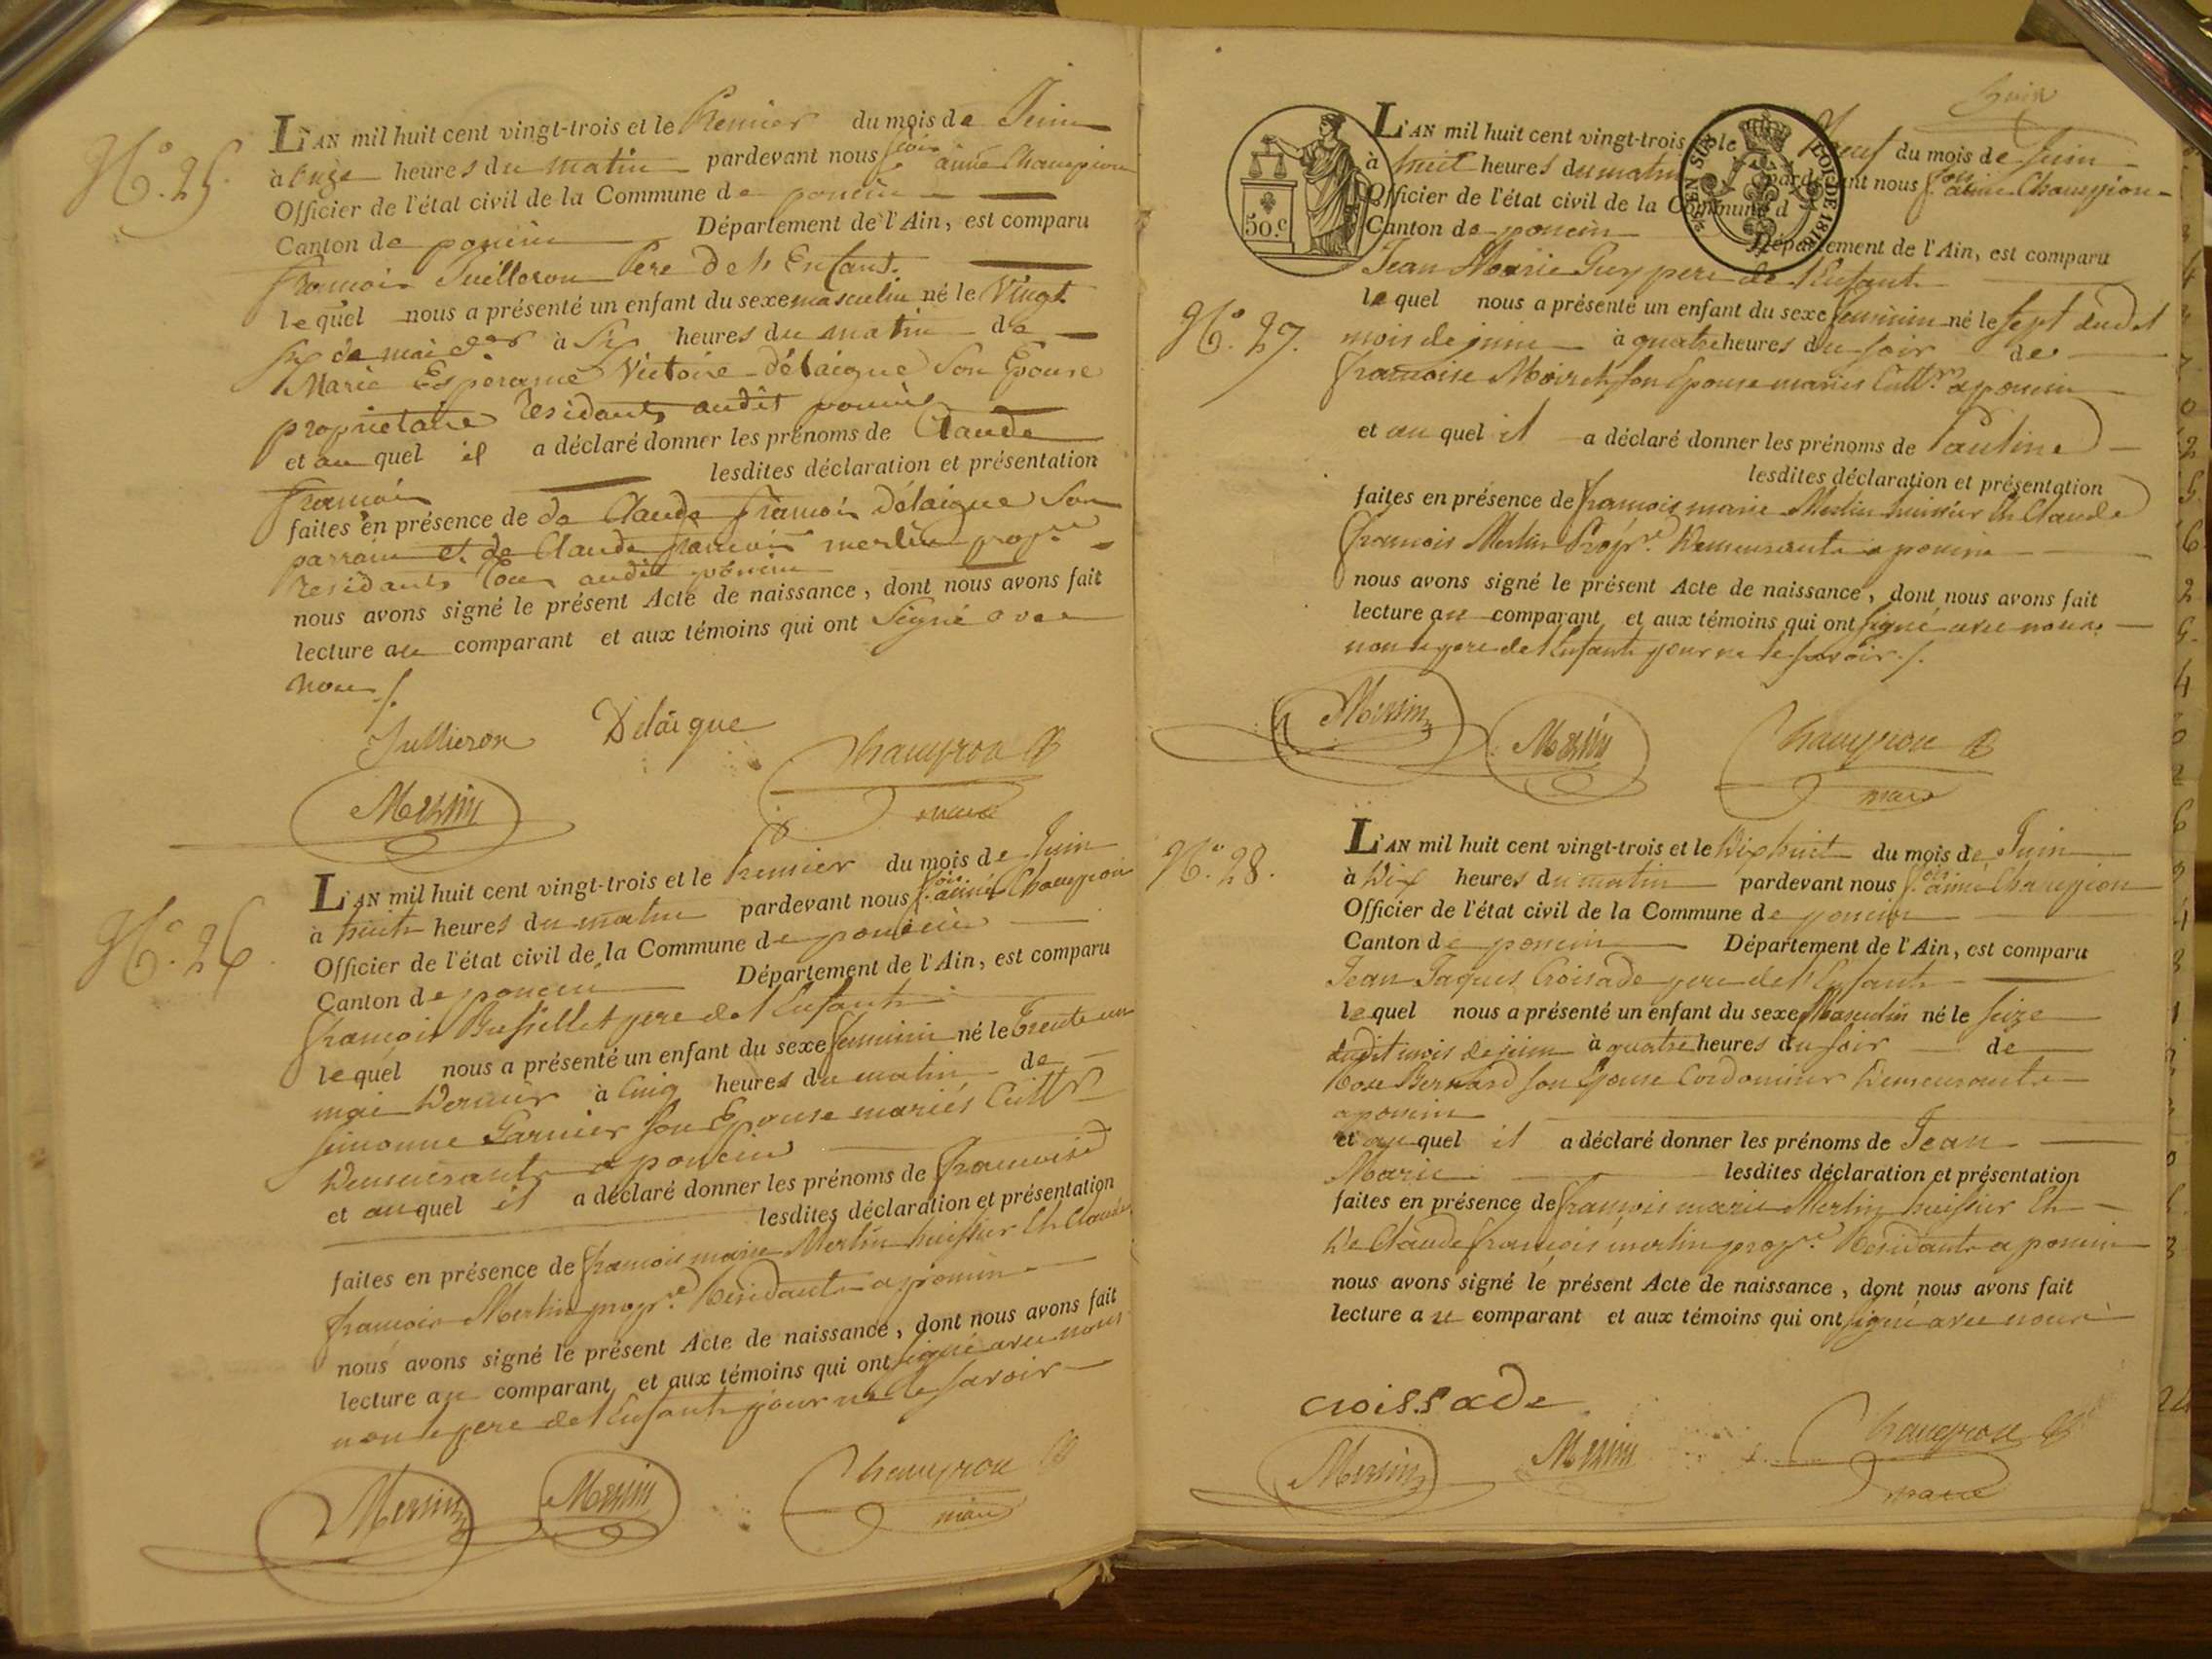 N.° 25.
L'AN mil huit cent vingt-trois et le Premier du mois de Juin
à onze heures du matin pardevant nous f.ois aimé Champion
Officier de l'état civil de la Commune de poncin
Canton de poncin Département de l'Ain, est comparu
françois Juilleron Pere De l'Enfant.
lequel nous a présenté un enfant du sexe masculin né le Vingt
six de mai d.er à Six heures du matin de
Marie Esperance Victoire Délaigue Son Epouse
proprietaire Residants audit poncin
et au quel il a déclaré donner les prénoms de Claude
françois lesdites déclaration et présentation
faites en présence de de Claude françois Délaigue Son
parrain et de Claude françois merlin prop.re
Residants tous audit poncin
nous avons signé le présent Acte de naissance, dont nous avons fait
lecture au comparant et aux témoins qui ont Signé avec
nous /.
Jullieron Delaigue
Merlin Champion
maire
N.° 26.
L'AN mil huit cent vingt-trois et le Premier du mois de Juin
à huit heures du matin pardevant nous f.ois aimé Champion
Officier de l'état civil de la Commune de poncin
Canton de poncin Département de l'Ain, est comparu
françois pere de l'Enfant
lequel nous a présenté un enfant du sexe feminin né le Trente un
mai Dernier à Cinq heures du matin de
simonne Garnier son Epouse mariés Cult.rs
Demeurants a poncin
et au quel il a déclaré donner les prénoms de francoise
lesdites déclaration et présentation
faites en présence de francois marie Merlin huissier Et Claude
francois Merlin prop.re Résidants a poncin
nous avons signé le présent Acte de naissance, dont nous avons fait
lecture au comparant et aux témoins qui ont signé avec nous
non le pere de l'Enfant pour ne le savoir
Merlin Merlin Champion
maire
Juin
50.c
EN SUS LOI DE 1816
N.° 27.
L'AN mil huit cent vingt-trois le Neuf du mois de Juin
à huit heures du matin pardevant nous f.ois aimé Champion
Officier de l'état civil de la Commune d
Canton de poncin Département de l'Ain, est comparu
Jean Marie Guy pere de l'Enfant
le quel nous a présenté un enfant du sexe feminin né le sept dudit
mois de juin à quatre heures du soir de
francoise Moiret son Epouse mariés Cult.rs a poncin
et au quel il a déclaré donner les prénoms de Pauline
lesdites déclaration et présentation
faites en présence de francois marie Merlin huissier Et Claude
francois Merlin Prop.re Demeurants a poncin
nous avons signé le présent Acte de naissance, dont nous avons fait
lecture au comparant et aux témoins qui ont signé avec nous
non le pere de l'Enfant pour ne le savoir /.
Merlin Merlin Champion
maire
N.° 28.
L'AN mil huit cent vingt-trois et le Dix huit du mois de Juin
à Dix heures du matin pardevant nous f.ois aimé Champion
Officier de l'état civil de la Commune de poncin
Canton de poncin Département de l'Ain, est comparu
Jean Jaques Croisade pere de l'Enfant
lequel nous a présenté un enfant du sexe Masculin né le seize
dudit mois de juin à quatre heures du soir de
Rose Bernard son Epouse Cordonnier Demeurants
a poncin
et au quel il a déclaré donner les prénoms de Jean
Marie lesdites déclaration et présentation
faites en présence de françois marie Merlin huissier Et
De Claude francois merlin prop.re Residants a poncin
nous avons signé le présent Acte de naissance, dont nous avons fait
lecture au comparant et aux témoins qui ont signé avec nous
croissade
Merlin Merlin Champion
maire